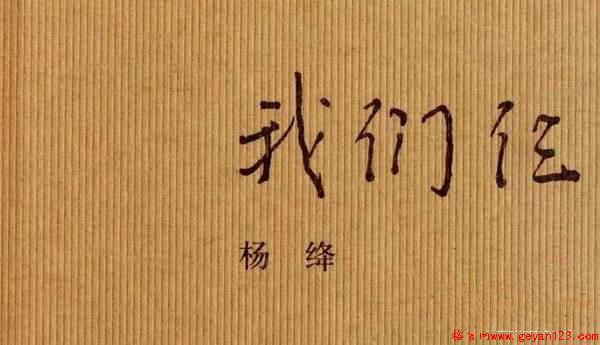 我们仨
杨 绛
格言网www.geyan123.com